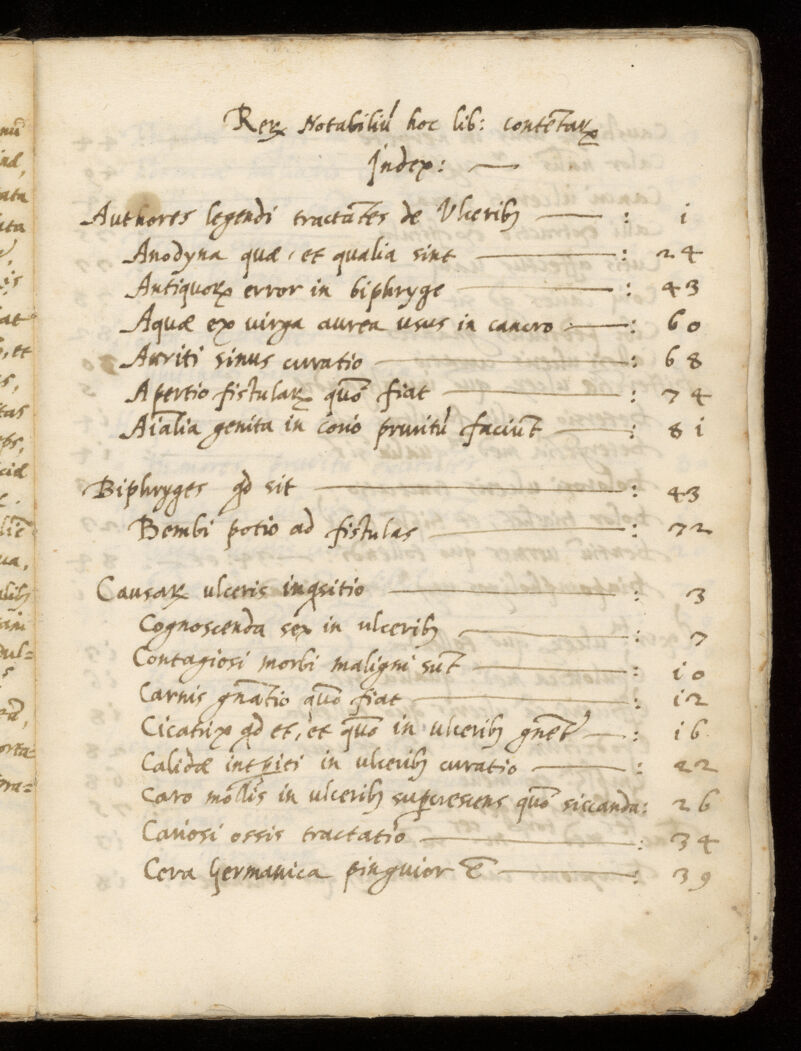 Rerꝝ Notabiliū hoc lib: contētarꝝ
Index: —
Authores legendi tractātes de Ulceribꝫ — : 1
Anodyna quæ, et qualia sint — : 24
Antiquorꝝ error in biphryge — : 43
Aquæ ex virga aurea usus in cancro — : 60
Auriti sinus curatio — : 68
Apertio fistularꝝ quō fiat — : 74
Aīalia genita in corio pruritū faciūt — : 81
Biphryges qd sit — : 43
Bembi potio ad fistulas — : 72
Causarꝝ ulceris inqsitio — : 3
Cognoscenda sex in ulceribꝫ — : 7
Contagiosi morbi maligni sūt — : 10
Carnis gnātio quō fiat — : 12
Cicatrix qd et, et quō in ulceribꝫ gnēt — : 16
Calidæ intꝑiei in ulceribꝫ curatio — : 22
Caro mollis in ulceribꝫ suꝑcrescens quō siccanda: 26
Cariosi ossis tractatio — : 34
Cera Germanica pinguior ē — : 39